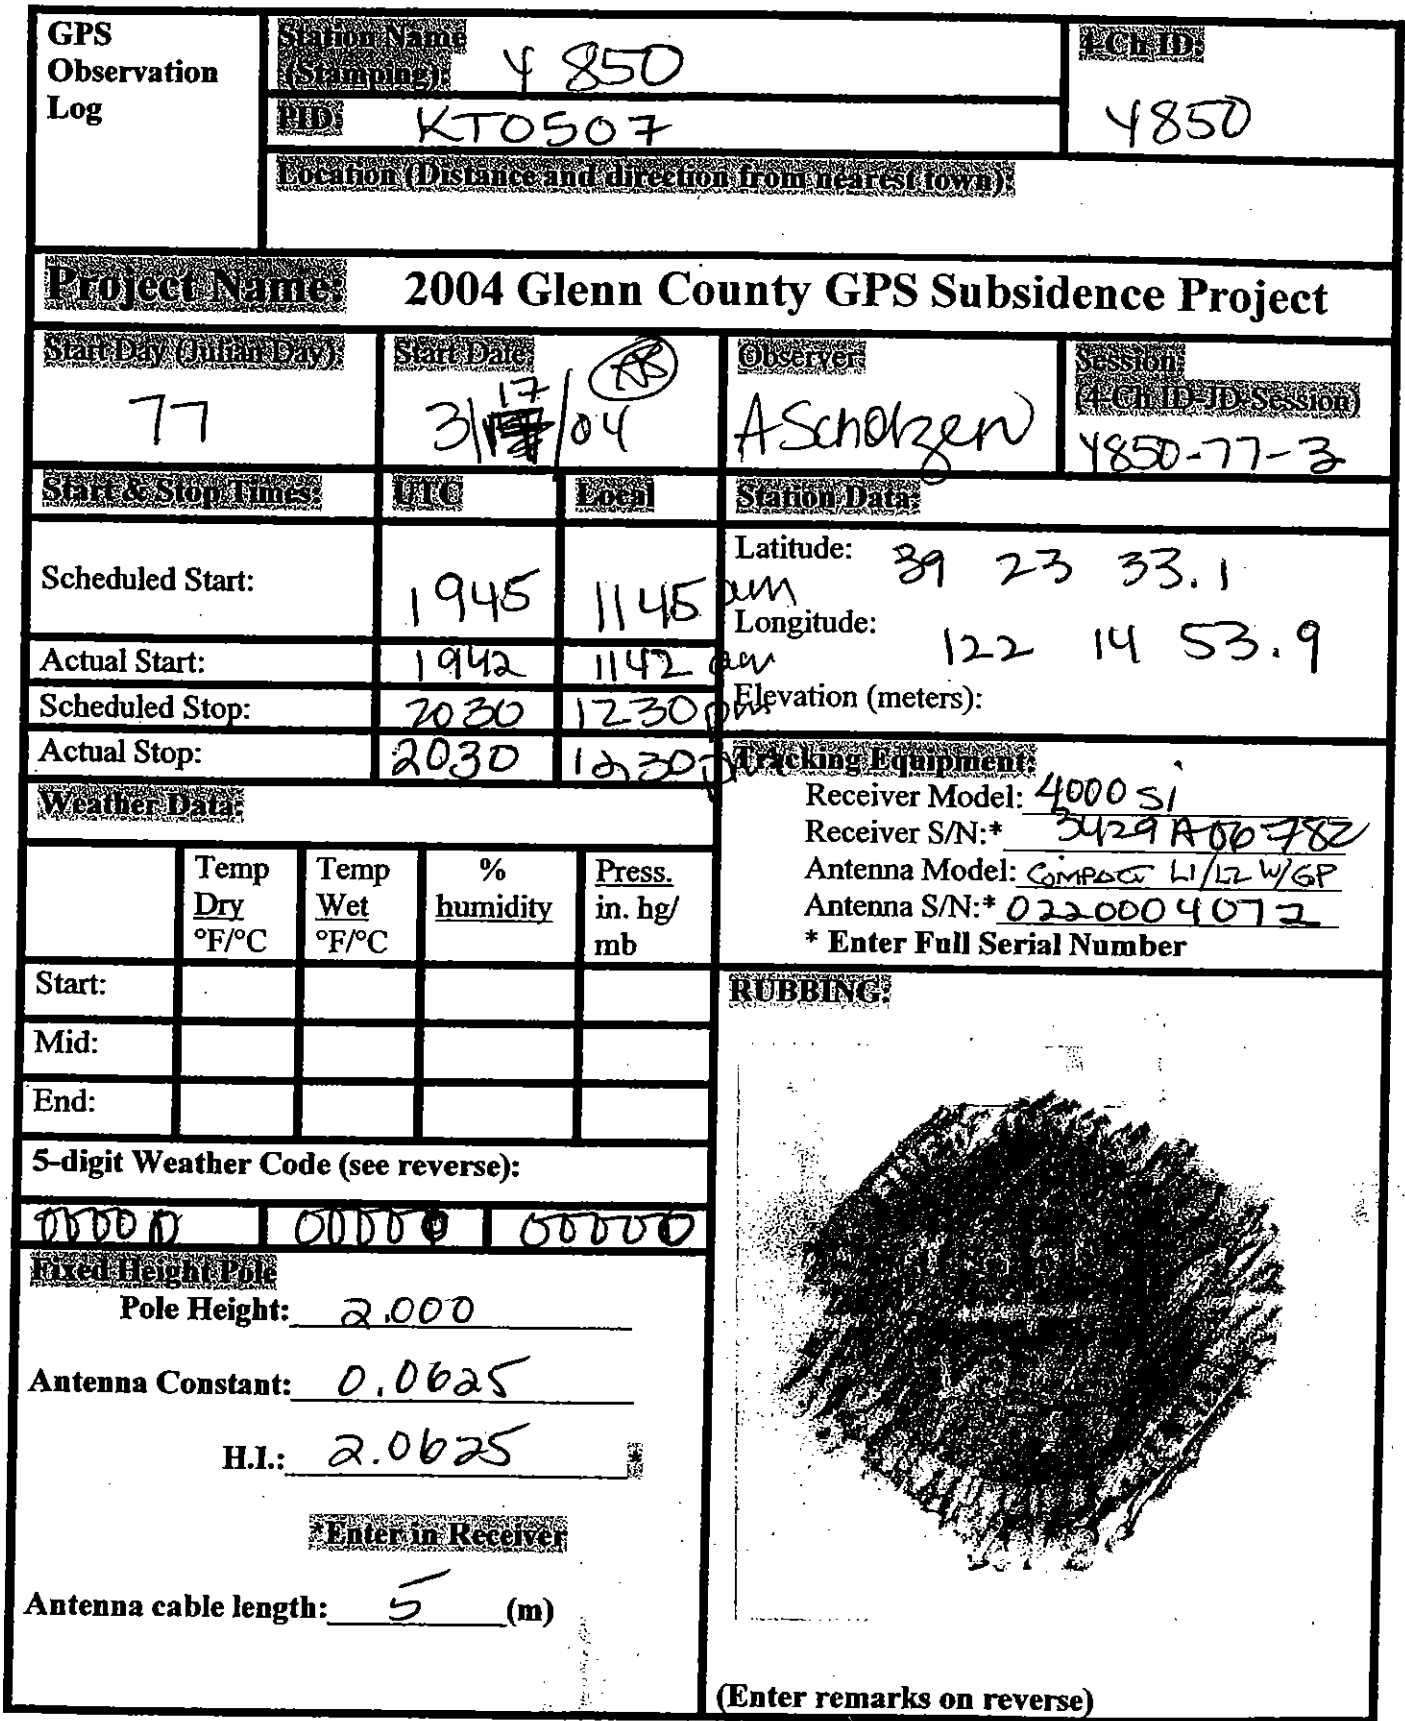 GPS
Observation
Log
Station Name
(Stamping): Y 850
4-Ch ID:
Y850
PID: KT0507
Location (Distance and direction from nearest town):
Project Name: 2004 Glenn County GPS Subsidence Project
Start Day (Julian Day):
77
Start Date:
3/17/04
Observer:
A Scholzen
Session:
(4-Ch ID-JD-Session)
Y850-77-3
Start & Stop Times: UTC Local
Scheduled Start: 1945 1145 am
Actual Start: 1942 1142 am
Scheduled Stop: 2030 1230 pm
Actual Stop: 2030 1230 pm
Station Data:
Latitude: 39 23 33.1
Longitude: 122 14 53.9
Elevation (meters):
Tracking Equipment:
Receiver Model: 4000 si
Receiver S/N:* 3429A06782
Antenna Model: COMPACT L1/L2 W/GP
Antenna S/N:* 0220004072
* Enter Full Serial Number
Weather Data:
Temp Dry °F/°C
Temp Wet °F/°C
% humidity
Press. in. hg/ mb
Start:
Mid:
End:
5-digit Weather Code (see reverse):
00000 00000 00000
Fixed Height Pole
Pole Height: 2.000
Antenna Constant: 0.0625
H.I.: 2.0625 *
*Enter in Receiver
Antenna cable length: 5 (m)
RUBBING:
(Enter remarks on reverse)